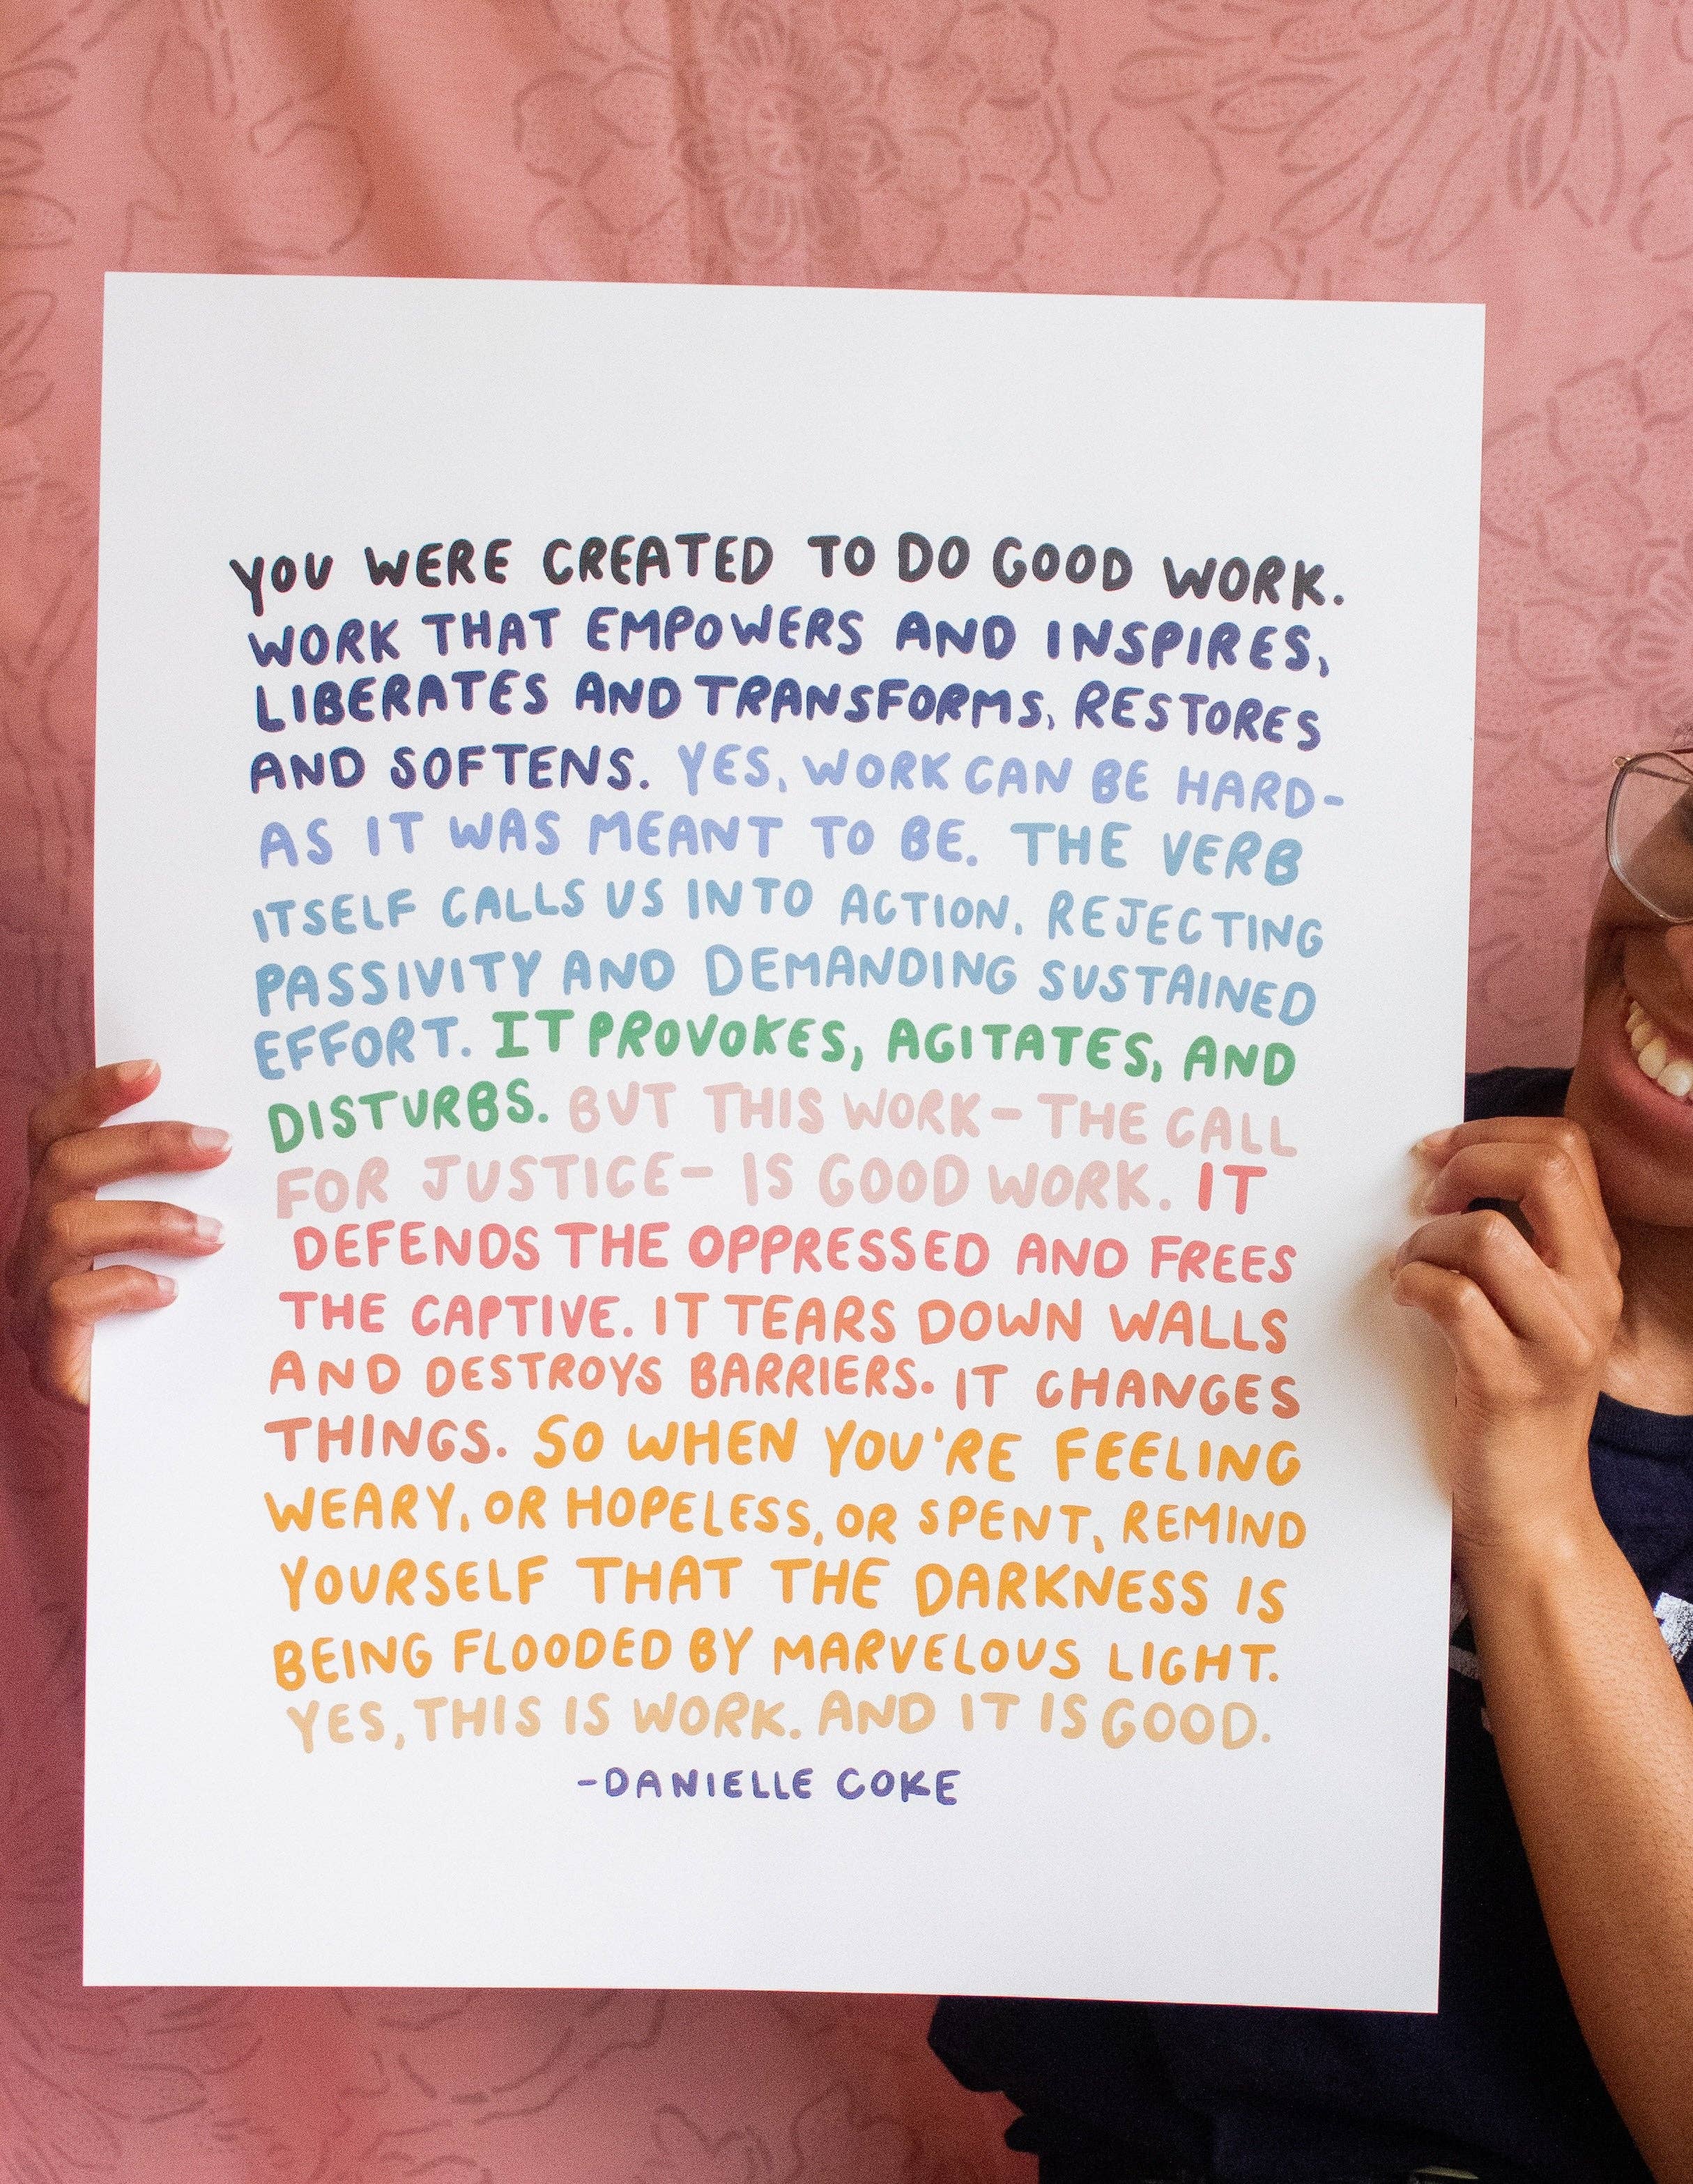 YOU WERE CREATED TO DO GOOD WORK.
WORK THAT EMPOWERS AND INSPIRES,
LIBERATES AND TRANSFORMS, RESTORES
AND SOFTENS. YES, WORK CAN BE HARD-
AS IT WAS MEANT TO BE. THE VERB
ITSELF CALLS US INTO ACTION, REJECTING
PASSIVITY AND DEMANDING SUSTAINED
EFFORT. IT PROVOKES, AGITATES, AND
DISTURBS. BUT THIS WORK- THE CALL
FOR JUSTICE- IS GOOD WORK. IT
DEFENDS THE OPPRESSED AND FREES
THE CAPTIVE. IT TEARS DOWN WALLS
AND DESTROYS BARRIERS. IT CHANGES
THINGS. SO WHEN YOU'RE FEELING
WEARY, OR HOPELESS, OR SPENT, REMIND
YOURSELF THAT THE DARKNESS IS
BEING FLOODED BY MARVELOUS LIGHT.
YES, THIS IS WORK. AND IT IS GOOD.
-DANIELLE COKE